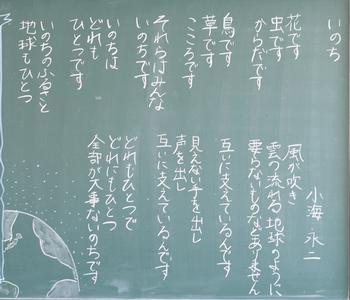 いのち
小海永二
花です
虫です
からだです
鳥です
草です
こころです
それらはみんな
いのちです
いのちは
どれも
ひとつです
いのちのふるさと
地球もひとつ
風が吹き
雲の流れる地球のように
要らないものなどありません
互いに支えているんです
見えない手を出し
声を出し
互いに支えているんです
どれもひとつで
どれにもひとつ
全部が大事ないのちです